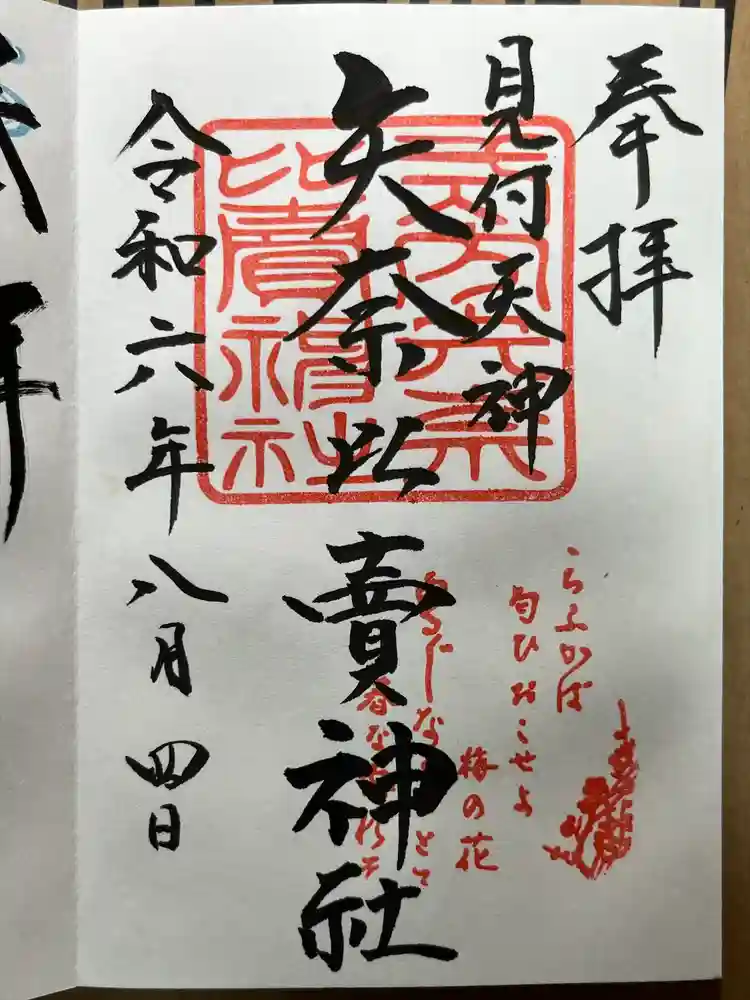 奉拝
見付天神
矢奈比賣神社
令和六年八月四日
こちふかば
匂ひおこせよ
梅の花
あるじなしとて
春な